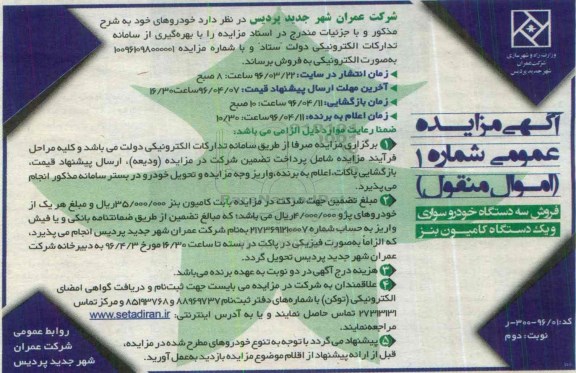 وزارت راه و شهرسازی
شرکت عمران
شهر جدید پردیس
آگهی مزایده
عمومی شماره ۱
(اموال منقول)
فروش سه دستگاه خودرو سواری
و یک دستگاه کامیون بنز
کد: ۹۶/۰۱-۳۰۰-ر
نوبت: دوم
شرکت عمران شهر جدید پردیس در نظر دارد خودروهای خود به شرح
مذکور و با جزئیات مندرج در اسناد مزایده را با بهره‌گیری از سامانه
تدارکات الکترونیکی دولت ستاد و با شماره مزایده ۱۰۰۹۶۱۰۹۸۰۰۰۰۰۱
به‌صورت الکترونیکی به فروش برساند.
زمان انتشار در سایت: ۹۶/۰۳/۲۲ ساعت: ۸ صبح
آخرین مهلت ارسال پیشنهاد قیمت: ۹۶/۰۴/۰۷ساعت: ۱۶/۳۰
زمان بازگشایی: ۹۶/۰۴/۱۱ ساعت: ۱۰ صبح
زمان اعلام به برنده: ۹۶/۰۴/۱۱ ساعت: ۱۰/۳۰
ضمنا رعایت موارد ذیل الزامی می باشد:
۱ برگزاری مزایده صرفا از طریق سامانه تدارکات الکترونیکی دولت می باشد و کلیه مراحل
فرآیند مزایده شامل پرداخت تضمین شرکت در مزایده (ودیعه)، ارسال پیشنهاد قیمت،
بازگشایی پاکات، اعلام به برنده، واریز وجه مزایده و تحویل خودرو در بستر سامانه مذکور انجام
می پذیرد.
۲ مبلغ تضمین جهت شرکت در مزایده بابت کامیون بنز ۳۵/۰۰۰/۰۰۰ریال و مبلغ هر یک از
خودروهای پژو ۴/۰۰۰/۰۰۰ریال می باشد؛ که مبالغ تضمین از طریق ضمانتنامه بانکی و یا فیش
واریز به حساب شماره ۲۱۷۳۶۹۲۱۰۰۰۷ به‌نام شرکت عمران شهر جدید پردیس انجام می پذیرد،
که الزاما به‌صورت فیزیکی در پاکت در بسته تا ساعت ۱۶/۳۰ مورخ ۹۶/۴/۳ به دبیرخانه شرکت
عمران شهر جدید پردیس تحویل گردد.
۳ هزینه درج آگهی در دو نوبت به عهده برنده می‌باشد.
۴ علاقمندان به شرکت در مزایده می بایست جهت ثبت‌نام و دریافت گواهی امضای
الکترونیکی (توکن) با شماره‌های دفتر ثبت‌نام ۸۸۹۶۹۷۳۷ و ۸۵۱۹۳۷۶۸ و مرکز تماس
۲۷۳۱۳۱۳۱ تماس حاصل نمایند و یا به آدرس اینترنتی: www.setadiran.ir
مراجعه‌نمایند.
۵ پیشنهاد می گردد با توجه به تنوع خودروهای مطرح شده در مزایده،
قبل از ارائه پیشنهاد از اقلام موضوع مزایده بازدید به‌عمل آورید.
روابط عمومی
شرکت عمران
شهر جدید پردیس